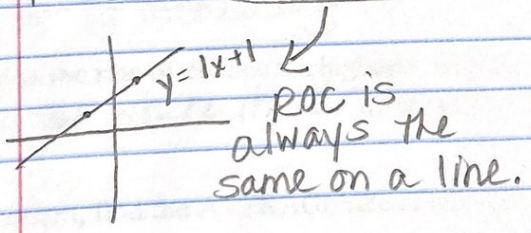 y = 1x+1
ROC is
always the
same on a line.